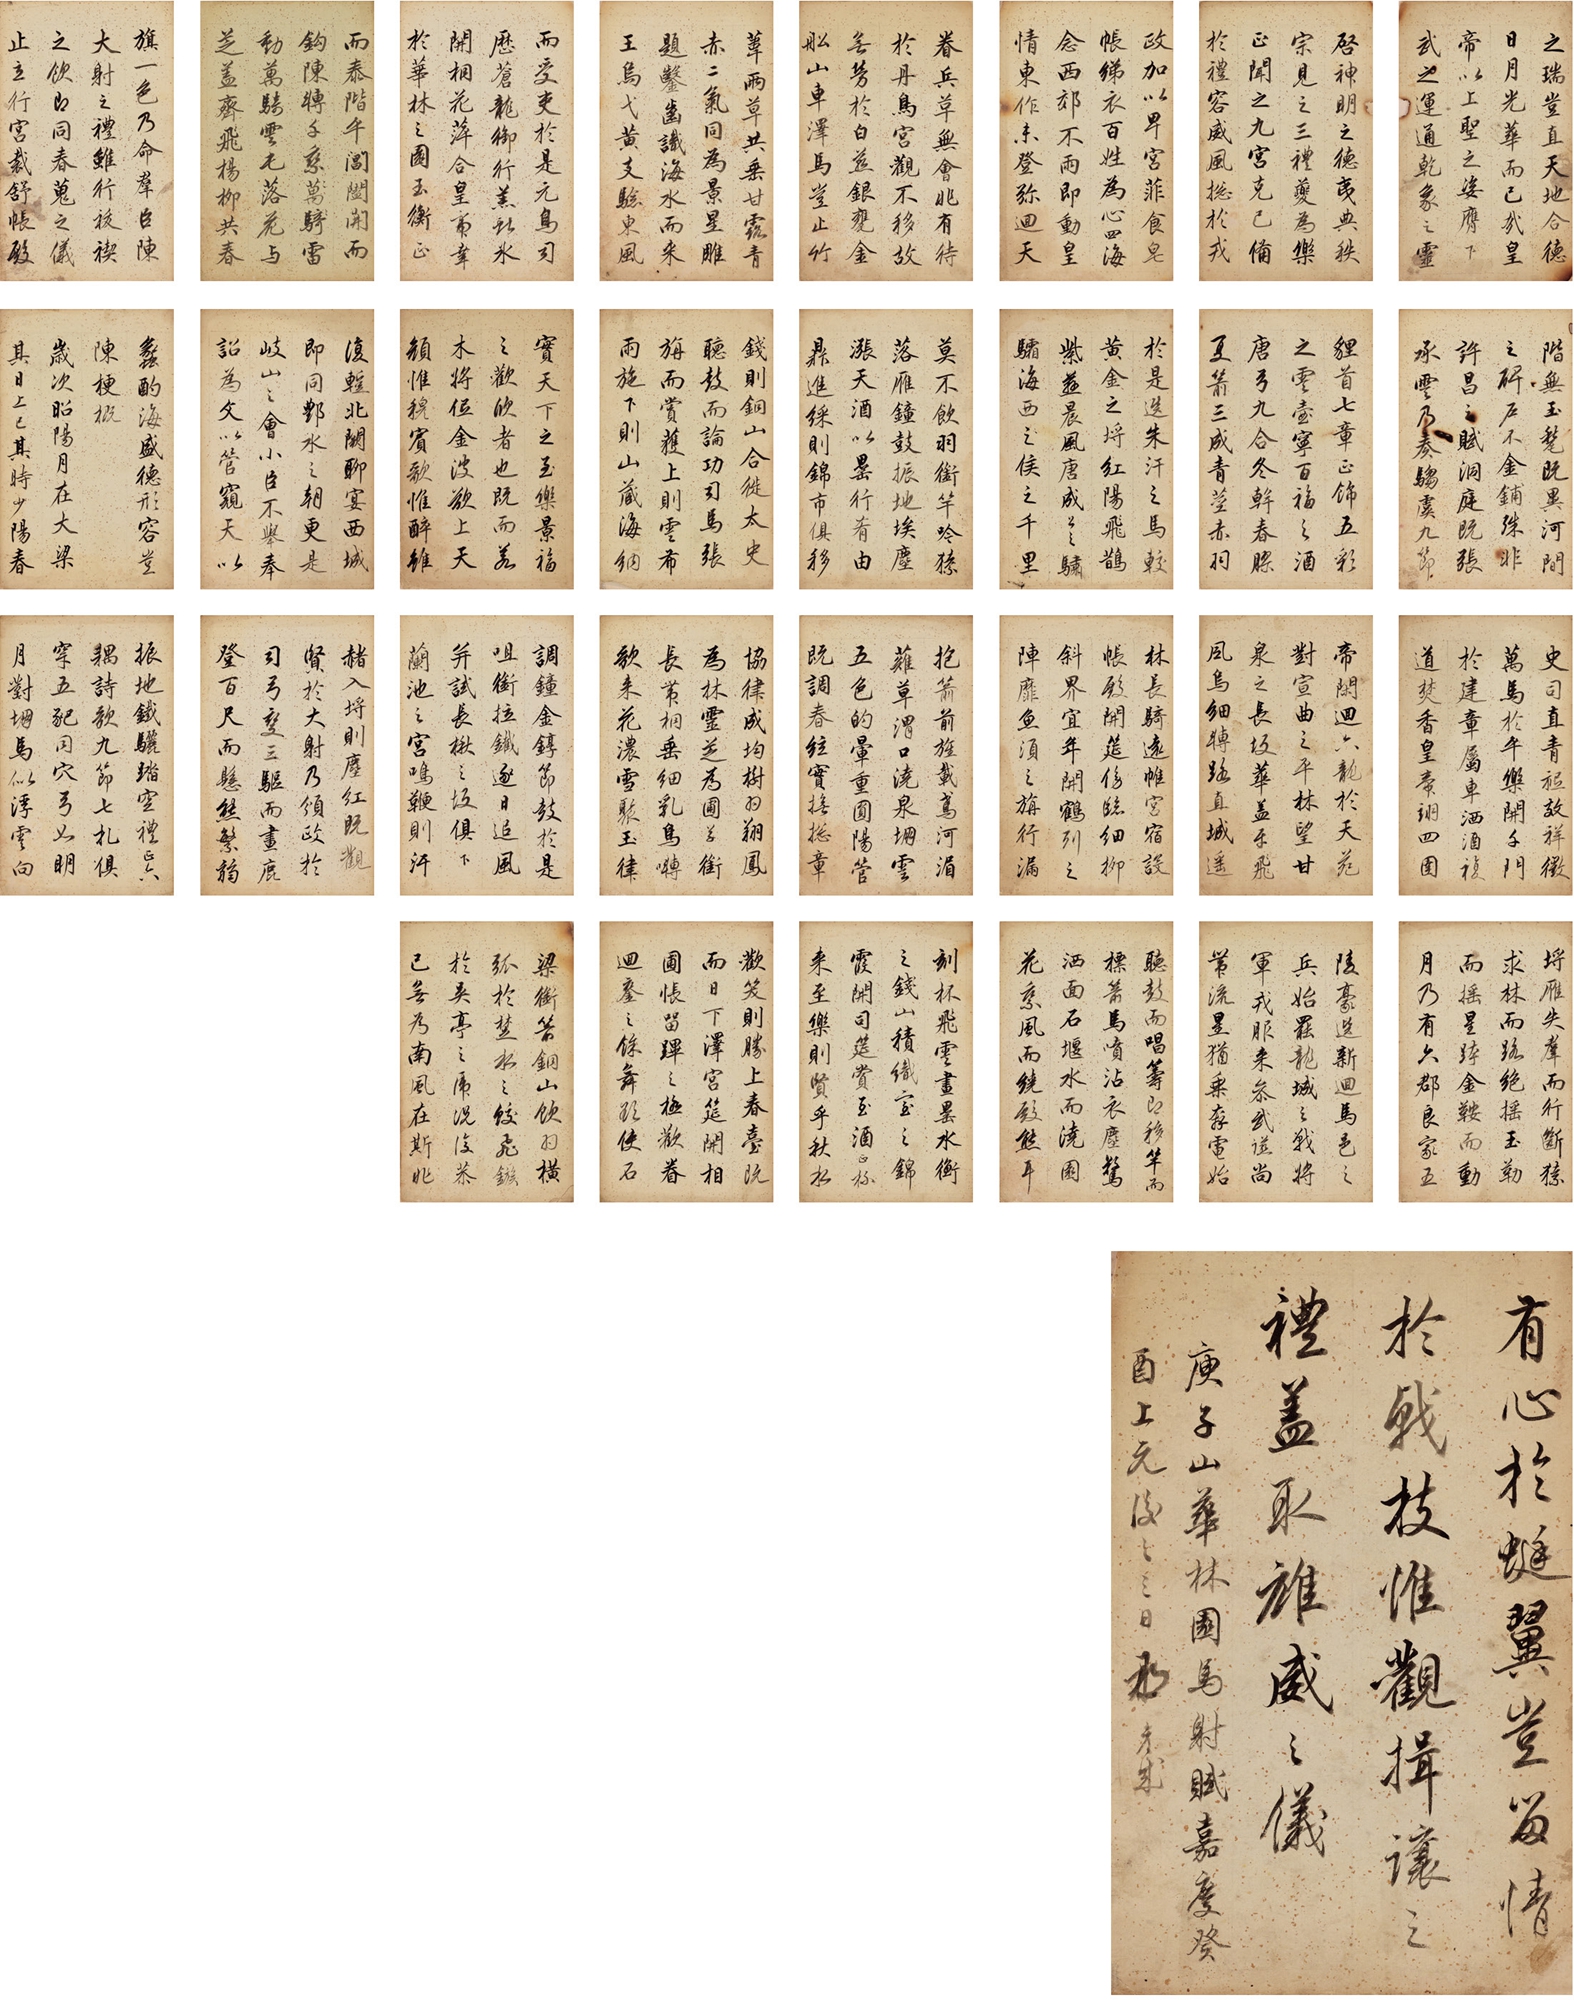 之瑞豈直天地合德
日月光華而已哉皇
帝以上聖之姿膺下
武之運通乾象之靈
啓神明之德夷典秩
宗見之三禮夔為樂
正聞之九宮克己備
於禮容威風揔於戎
政加以卑宮菲食皂
帳綈衣百姓為心四海
念西郊不雨即動皇
情東作未登弥迴天
眷兵草無會非有待
於丹鳥宮觀不移故
無勞於白燕銀甕金
船山車澤馬豈止竹
葦兩草共垂甘露青
赤二氣同為景星雕
題鑿齒識海水而来
王烏弋黃支驗東風
而受吏於是元鳥司
歷蒼龍御行羔獻冰
開桐花萍合皇帝幸
於華林之園玉衡正
而泰階平閶闔開而
鈎陳轉千乘萬騎雷
動萬騎雲屯落花与
芝蓋齊飛楊柳共春
旗一色乃命羣臣陳
大射之禮雖行祓禊
之飲即同春蒐之儀
止立行宮裁舒帳殿
階無玉甃既異河間
之碑户不金鋪殊非
許昌之賦洞庭既張
承雲乃奏騶虞九節
貍首七章正飾五彩
之雲壺寧百福之酒
唐弓九合冬幹春膠
夏箭三成青莖赤羽
於是選朱汗之馬較
黃金之埒紅陽飛鵲
紫燕晨風唐成公之驌
驦海西之侯之千里
莫不飲羽銜竿吟猿
落雁鐘鼓振地埃塵
漲天酒以罍行肴由
鼎進綵則錦市俱移
錢則銅山合徙太史
聽鼓而論功司馬張
旃而賞獲上則雲布
雨施下則山藏海納
實天下之至樂景福
之歡欣者也既而若
木將低金波欲上天
顏惟穆賓歌惟醉雖
復暫北闕聊宴西城
即同酆水之朝更是
岐山之會小臣不舉奉
詔為文以管窺天以
蠡酌海盛德形容豈
陳梗概
歲次昭陽月在大梁
其日上巳其時少陽春
史司直青祗效祥徵
萬馬於平樂開千門
於建章屬車洒酒複
道焚香皇帝翊四園
帝閑迴六龍於天苑
對宣曲之平林望甘
泉之長坂華蓋平飛
風烏細轉路直城遥
林長騎遠帷宮宿設
帳殿開筵傍臨細柳
斜界宜年開鶴列之
陣靡魚須之旃行漏
抱箭前旌載鳶河湄
薙草渭口澆泉堋雲
五色的暈重圓陽管
既調春絃實撫揔章
協律成均樹羽翔鳳
為林靈芝為圃草銜
長帶桐垂細乳鳥囀
歌来花濃雪聚玉律
調鐘金錞節鼓於是
咀銜拉鐵逐日追風
并試長楸之坂俱下
蘭池之宮鳴鞭則汗
赭入埒則塵紅既觀
賢於大射乃頒政於
司弓變三驅而畫鹿
登百尺而懸熊繁弱
振地鐵驪踏空禮正六
耦詩歌九節七札俱
穿五豝同穴弓如明
月對堋馬似浮雲向
埒雁失羣而行斷猿
求林而路絕搖玉勒
而搖星跨金鞍而動
月乃有六郡良家五
陵豪選新迴馬邑之
兵始罷龍城之戰將
軍戎服来參武讌尚
帶流星猶乘奔電始
聽鼓而唱籌即移竿而
標箭馬噴沾衣塵驚
洒面石堰水而澆園
花乘風而繞殿熊耳
刻杯飛雲畫罍水衡
之錢山積織室之錦
霞開司筵賞至酒正杯
来至樂則賢乎秋水
歡笑則勝上春臺既
而日下澤宮筵開相
圃悵留蹕之極歡眷
迴鑾之餘舞欲使石
梁銜箭銅山飲羽橫
弧於楚水之蛟飛鏃
於吳亭之虎況復恭
已無為南風在斯非
有心於蜓翼豈留情
於戟枝惟觀揖讓之
禮蓋取雄威之儀
庾子山華林園馬射賦嘉慶癸
酉上元後之三日